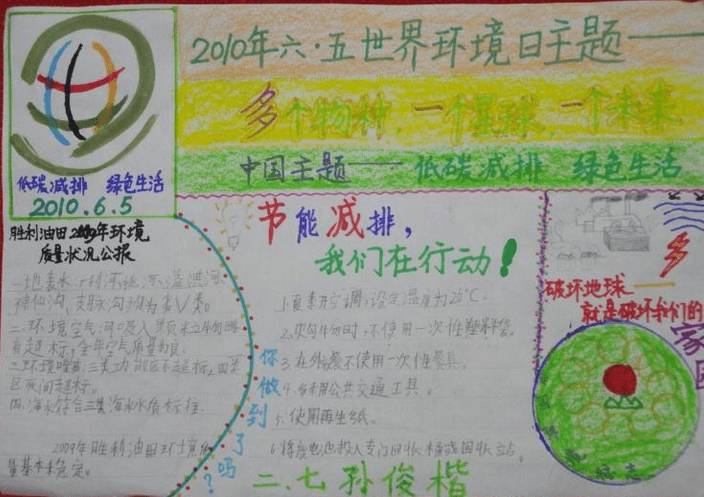 2010年六·五世界环境日主题——
多个物种，一个星球，一个未来
中国主题——低碳减排 绿色生活
低碳减排 绿色生活
2010.6.5
胜利油田2009年环境
质量状况公报
神仙沟，支脉沟均为劣V类。
有超标，全年空气质量为良。
三.环境噪声：三类功能区不超标，四类
区夜间超标。
四.海水符合三类海水水质标准。
2009年胜利油田环境质
量基本未稳定。
节能减排，
我们在行动！
1.夏季开空调，设定温度为26°C.
2.购物时，不使用一次性塑料袋。
3.在外餐不使用一次性餐具。
4.多利用公共交通工具。
5.使用再生纸。
6.将废电池投入专门回收桶或回收站。
你做到了吗？
破坏地球——
就是破坏我们的
家园
二.七 孙俊楷